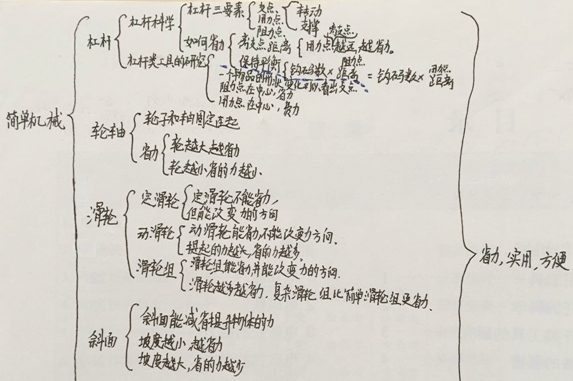 简单机械
杠杆
杠杆科学
杠杆三要素
支点
用力点
阻力点
转动
支撑
如何省力
离支点距离
用力点越远,越省力。
杠杆类工具的研究
保持平衡
钩码数×阻力点距离=钩码数×用力点距离
阻力点在中心,省力
用力点在中心,费力
轮轴
轮子和轴固定在一起
省力
轮越大越省力
轮越小省的力越小.
滑轮
定滑轮
定滑轮不能省力,
但能改变力的方向
动滑轮
动滑轮能省力,不能改变力方向.
提起的力越大,省的力越多.
滑轮组
滑轮组能省力并能改变力的方向.
滑轮越多越省力.复杂滑轮组比简单滑轮组更省力.
斜面
斜面能减省提升物体的力
坡度越小,越省力
坡度越大,省的力越少
省力,实用,方便